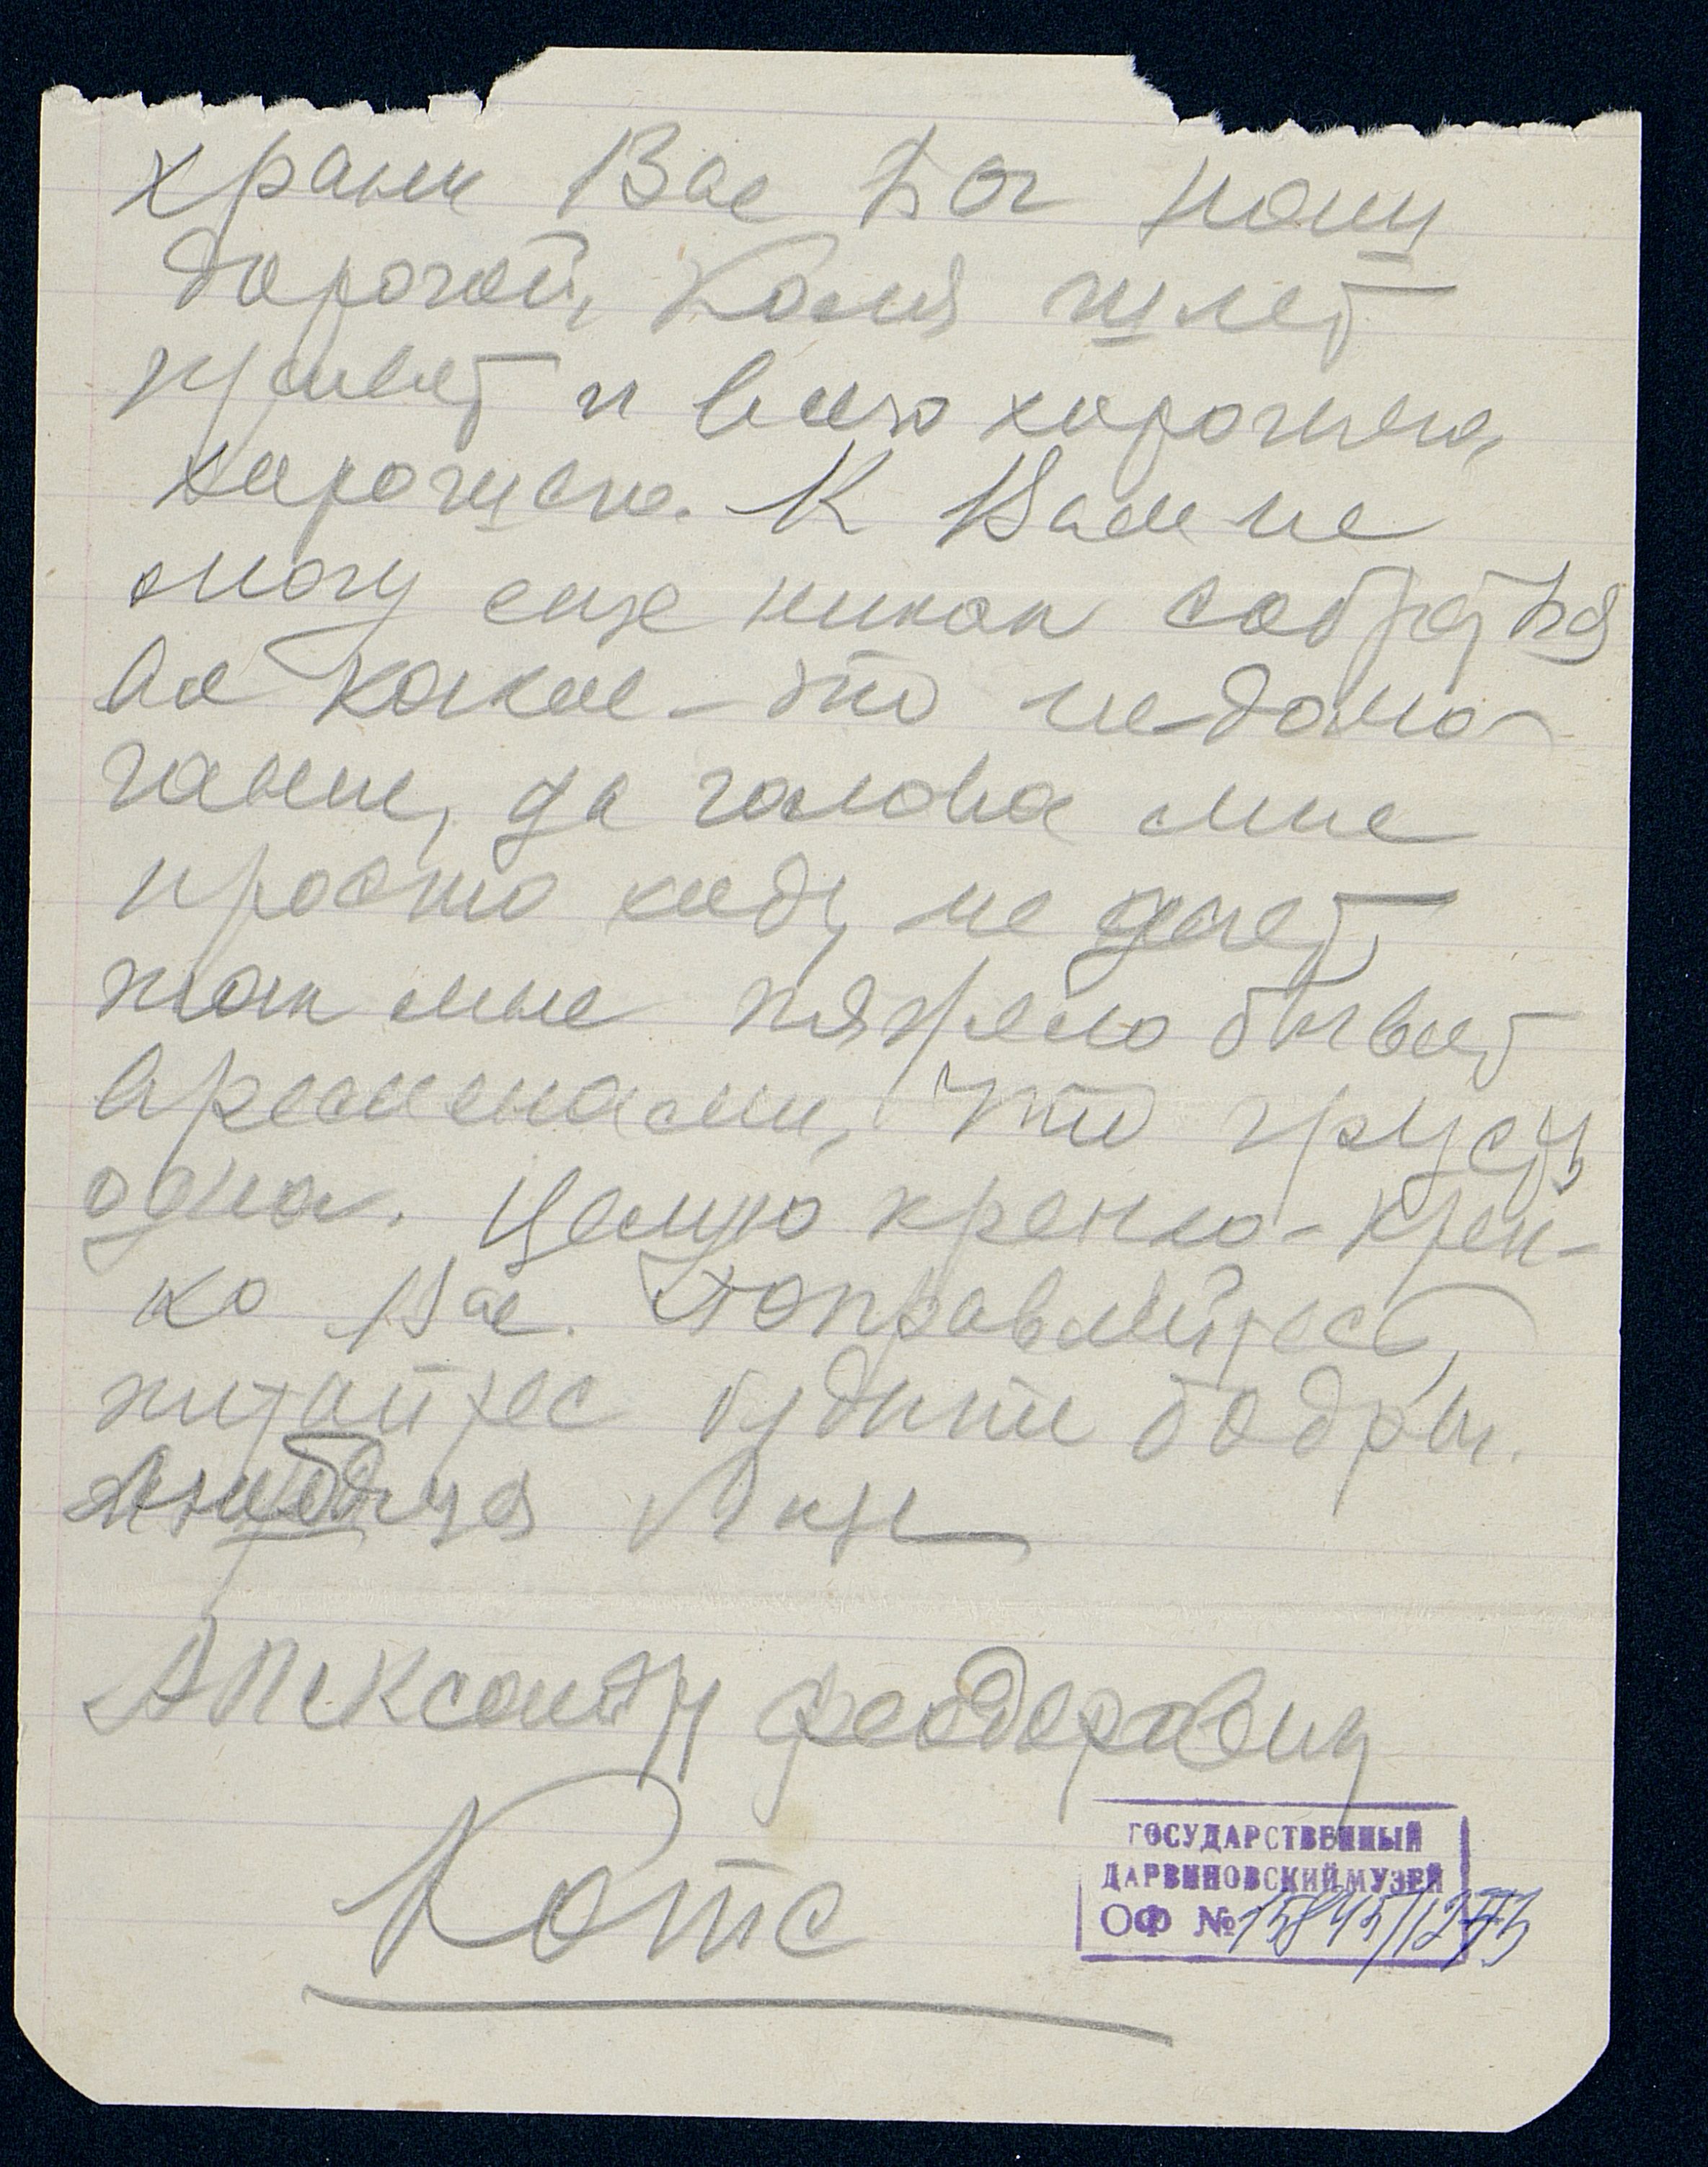 храни Вас Бог наш
дорогой, Коля шлет
привет и всего хорошего,
хорошего. К Вам не
могу еще никак собраться
все какое-то недомо-
гание, да голова мне
просто ходу не дает,
так мне тяжело бывает
временами, что грущу
одна. Целую крепко-креп-
ко Вас. Поправляйтесь,
питайтес будьте бодры.
Любящая
Александру Феодоровичу
Котс
ГОСУДАРСТВЕННЫЙ
ДАРВИНОВСКИЙ МУЗЕЙ
ОФ №